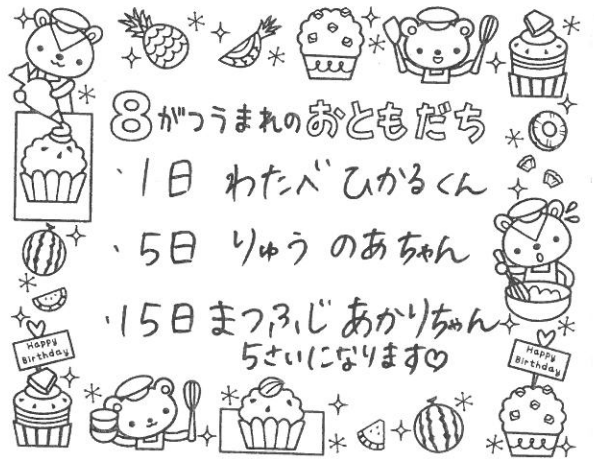 8がつうまれのおともだち
・1日 わたべ ひかるくん
・5日 りゅう のあちゃん
・15日 まつふじ あかりちゃん
5さいになります♡
Happy
Birthday
Happy
Birthday